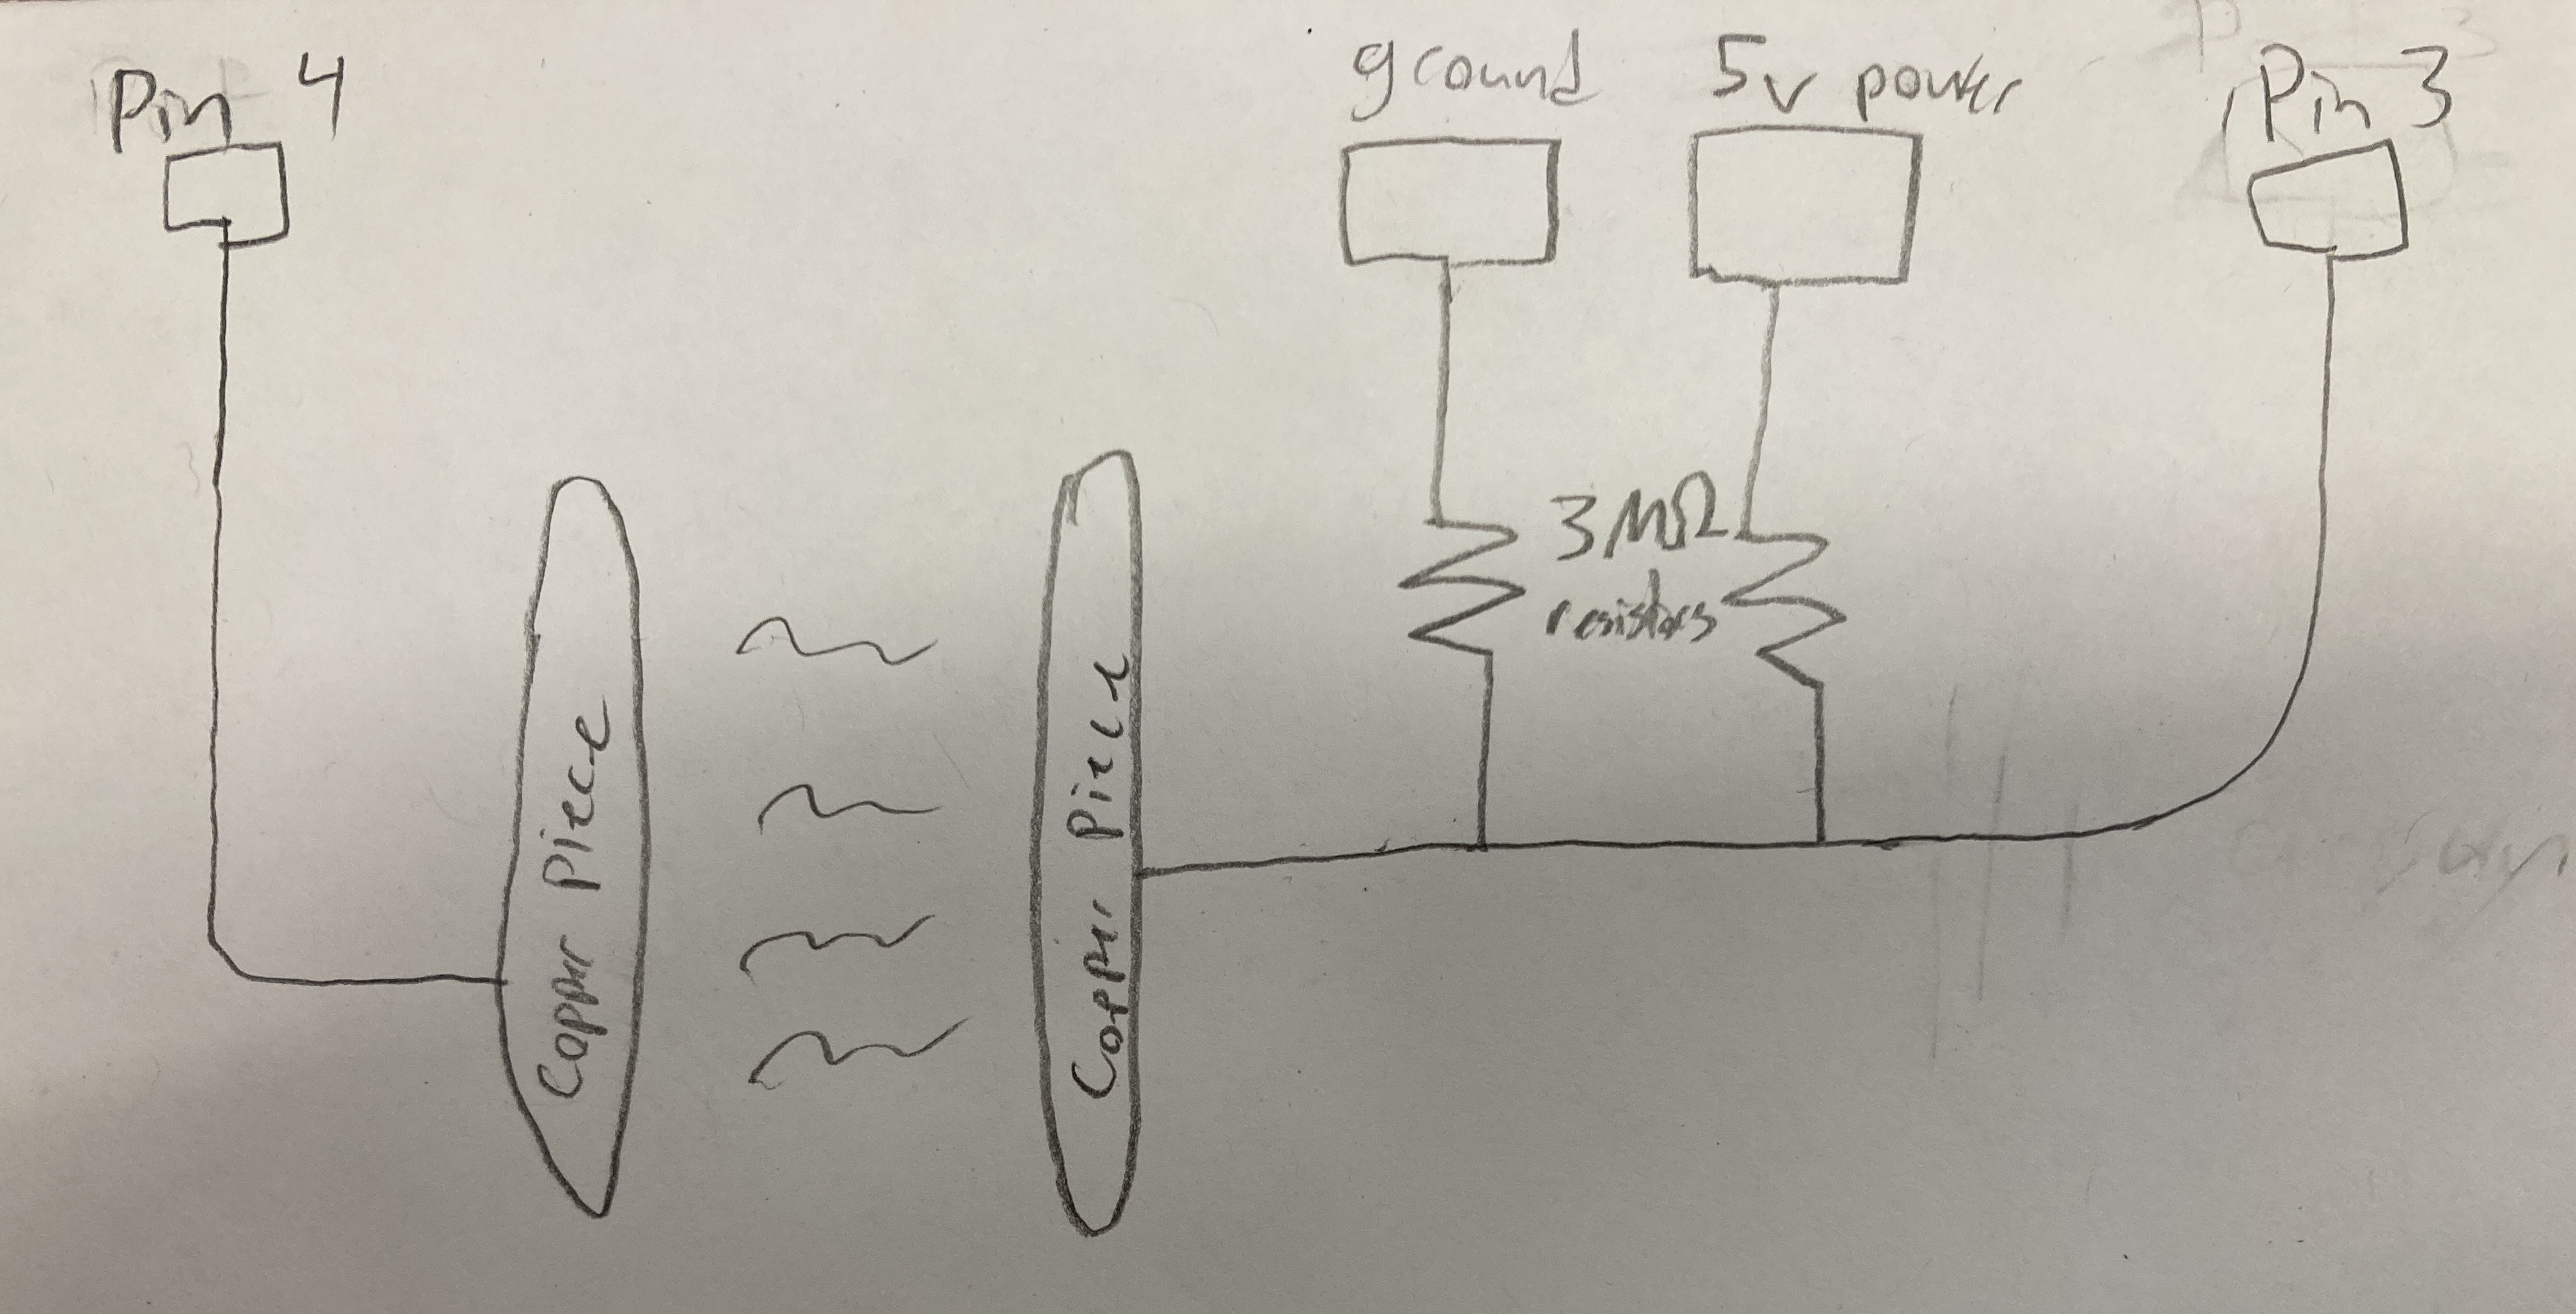 Pin 4
ground
5v power
Pin 3
3 MΩ
resistors
Copper Piece
Copper Piece